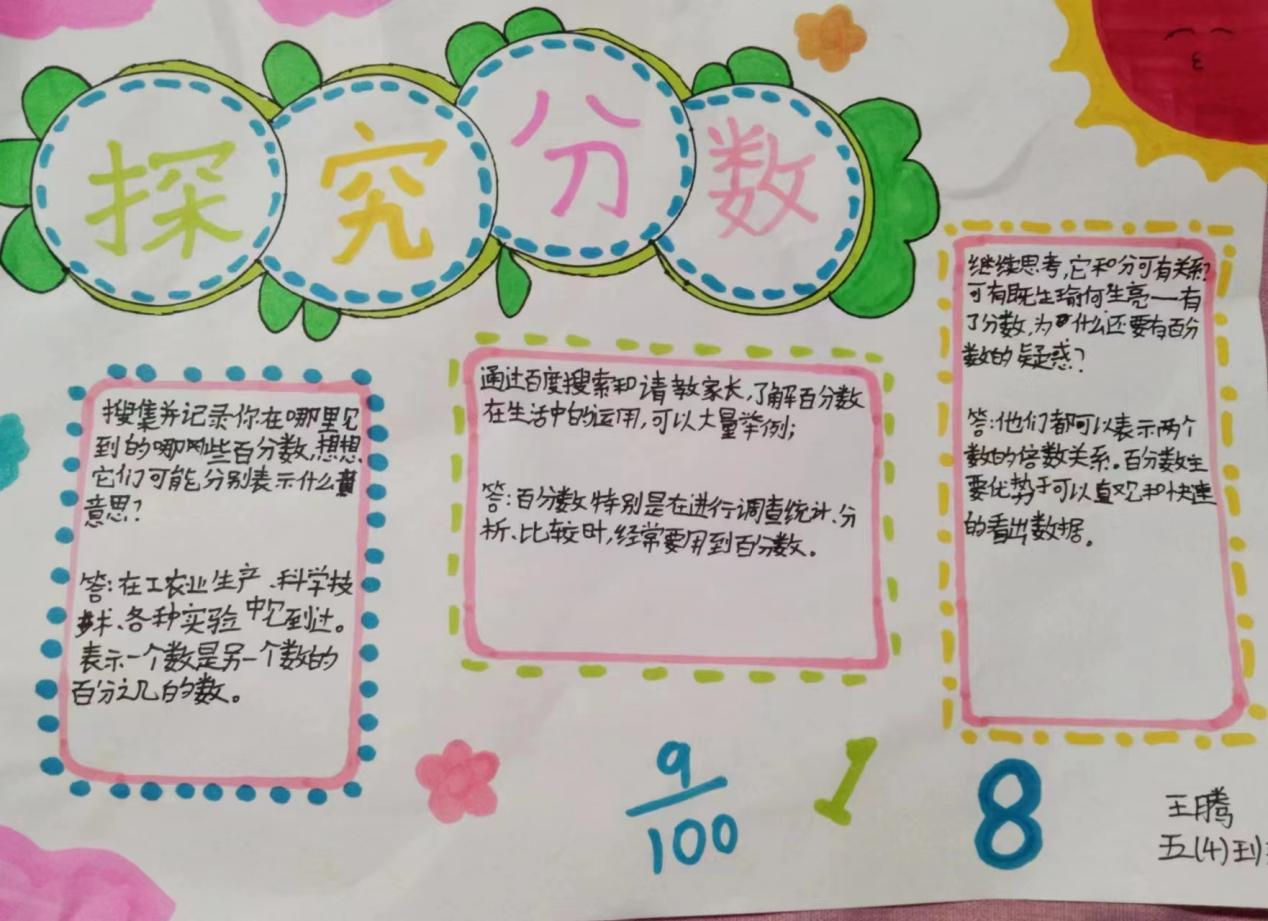 探究分数
搜集并记录你在哪里见
到的哪些百分数,想想
它们可能分别表示什么
意思?
答:在工农业生产、科学技
术、各种实验中见到过。
表示一个数是另一个数的
百分之几的数。
通过百度搜索和请教家长,了解百分数
在生活中的运用,可以大量举例;
答:百分数特别是在进行调查统计、分
析、比较时,经常要用到百分数。
继续思考,它和分可有关系?
可有既生瑜何生亮一有
了分数,为什么还要有百分
数的疑惑?
答:他们都可以表示两个
数的倍数关系。百分数主
要优势于可以直观和快速
的看出数据。
9
100
1
8
王腾
五(4)班